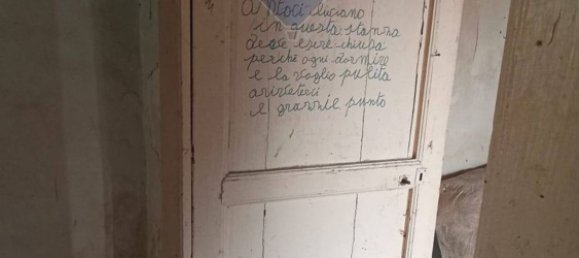 luciano
in questa stanza
deve esere chiusa
perche ogni dormire
e la voglio pulita
ariveteci
e grannie punto